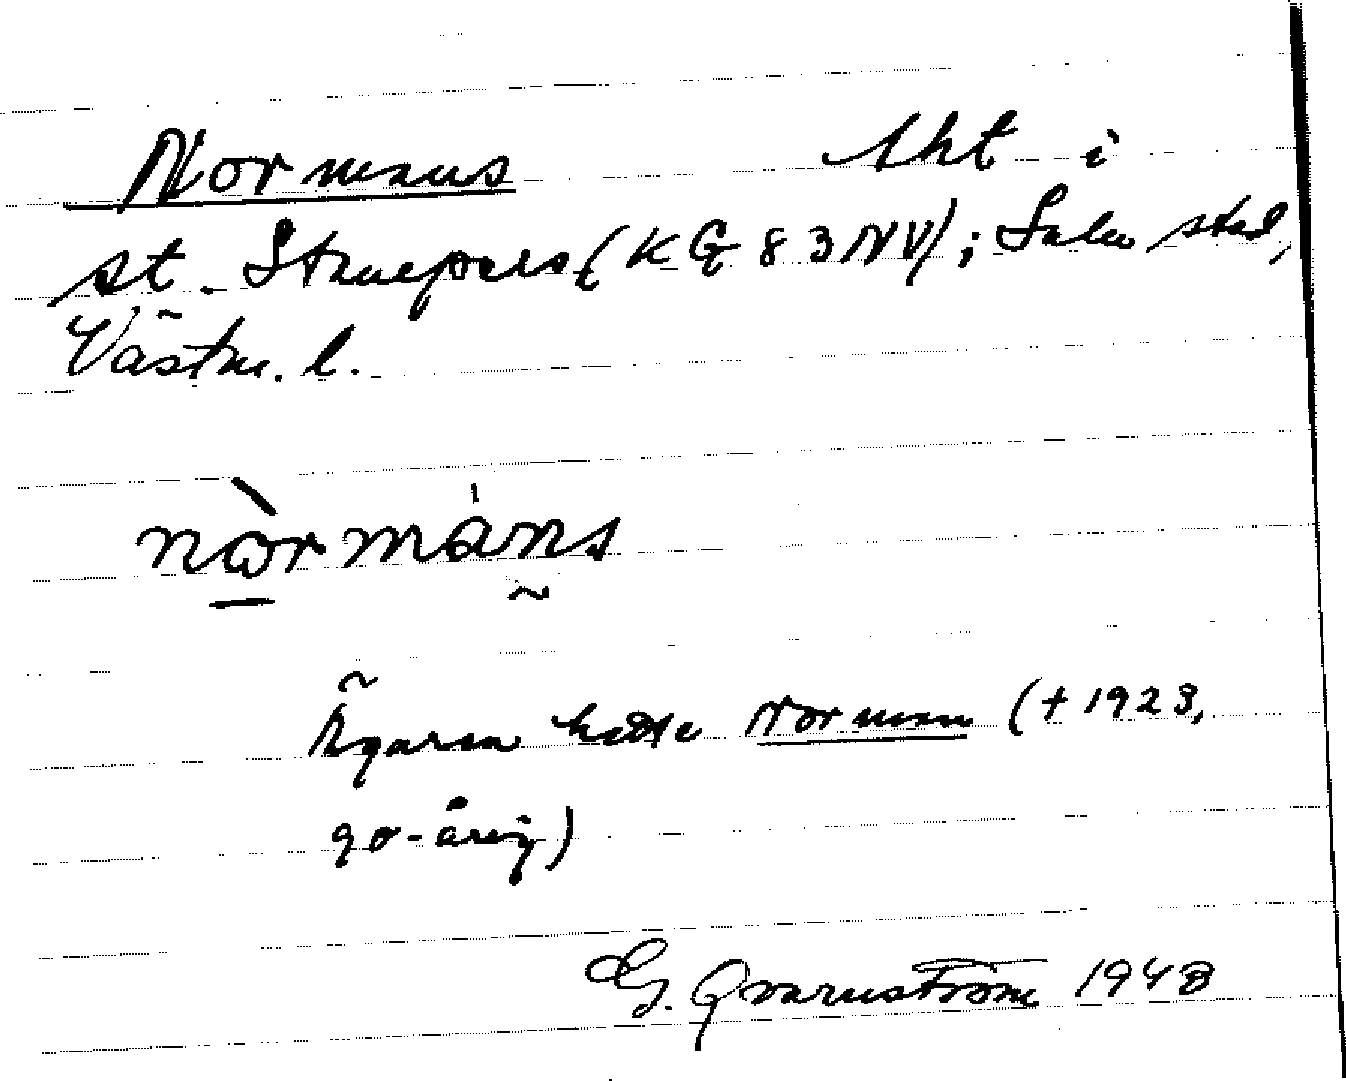 Normans lht i
st. Stampers (KG 83 NV); Sala stad,
Västm. l.
nòrmáns
Ägaren hette Norman (+ 1923,
90-årig)
G. Qvarnström 1948